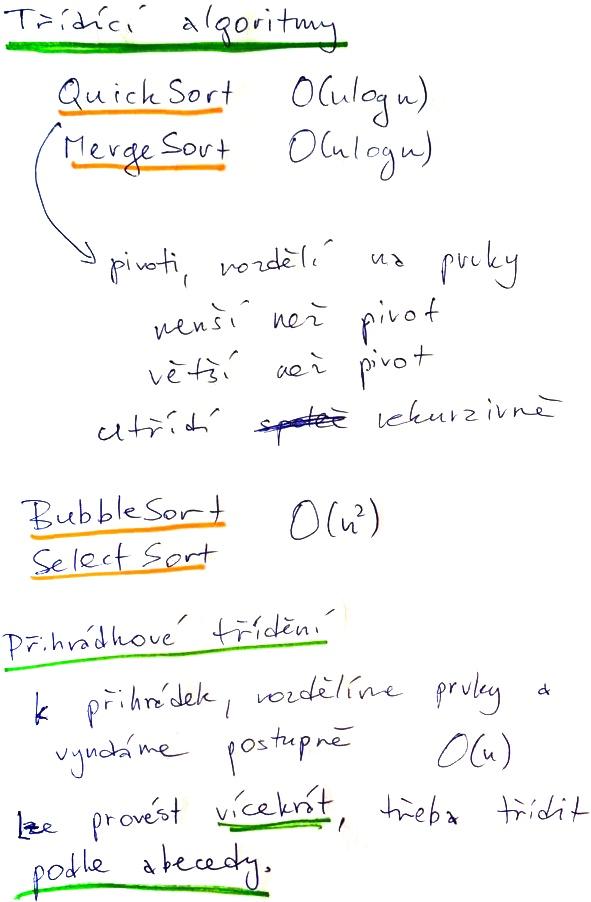 Třídící algoritmy
QuickSort O(n log n)
MergeSort O(n log n)
pivoti, rozdělí na prvky
menší než pivot
větší než pivot
utřídí rekurzivně
BubbleSort O(n²)
SelectSort
Přihrádkové třídění
k přihrádek, rozdělíme prvky a
vyndáme postupně O(n)
lze provést vícekrát, třeba třídit
podle abecedy.